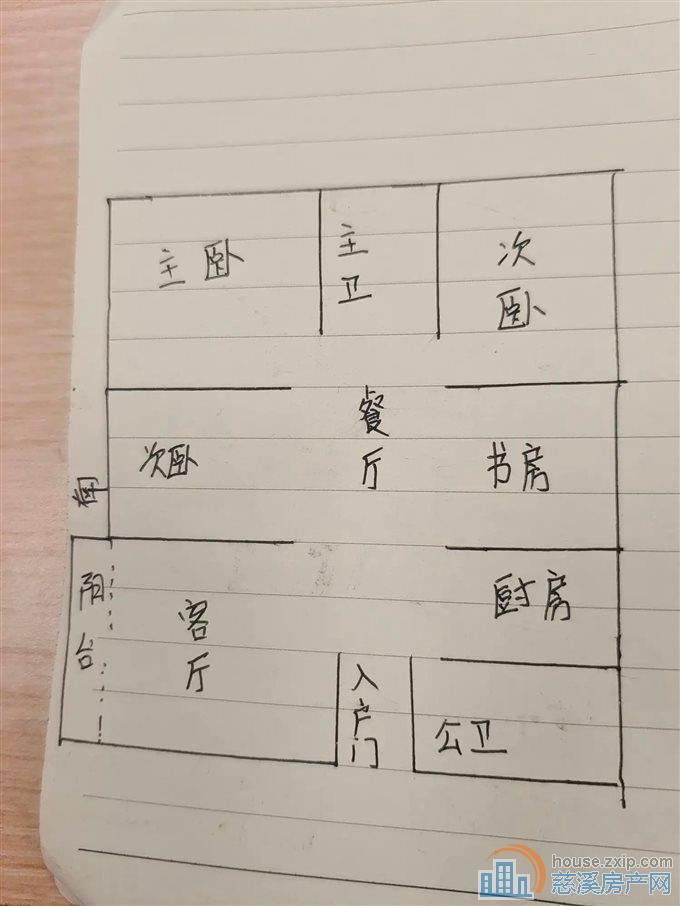 主卧
主卫
次卧
次卧
餐厅
书房
南
阳台
客厅
厨房
入户门
公卫
house.zxip.com
慈溪房产网